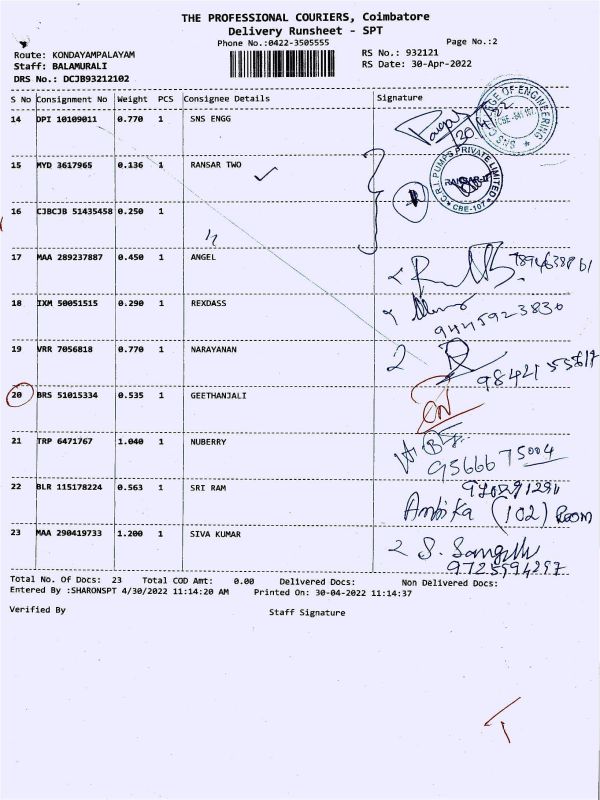 THE PROFESSIONAL COURIERS, Coimbatore
Delivery Runsheet - SPT
Phone No.:0422-3505555
Page No.:2
Route: KONDAYAMPALAYAM
Staff: BALAMURALI
DRS No.: DCJB93212102
RS No.: 932121
RS Date: 30-Apr-2022
S No Consignment No Weight PCS Consignee Details Signature
14 OPI 10109011 0.770 1 SNS ENGG
15 MYD 3617965 0.136 1 RANSAR TWO
C.R.I. PUMPS PRIVATE LIMITED
CBE-107
16 CJBCJB 51435458 0.250 1
17 MAA 289237887 0.450 1 ANGEL
18 IXM 50051515 0.290 1 REXDASS
9445923830
19 VRR 7056818 0.770 1 NARAYANAN
20 BRS 51015334 0.535 1 GEETHANJALI
21 TRP 6471767 1.040 1 NUBERRY
9566675004
22 BLR 115178224 0.563 1 SRI RAM
Ambika (102) Room
23 MAA 290419733 1.200 1 SIVA KUMAR
9725594297
Total No. Of Docs: 23 Total COD Amt: 0.00 Delivered Docs: Non Delivered Docs:
Entered By :SHARONSPT 4/30/2022 11:14:20 AM Printed On: 30-04-2022 11:14:37
Verified By Staff Signature